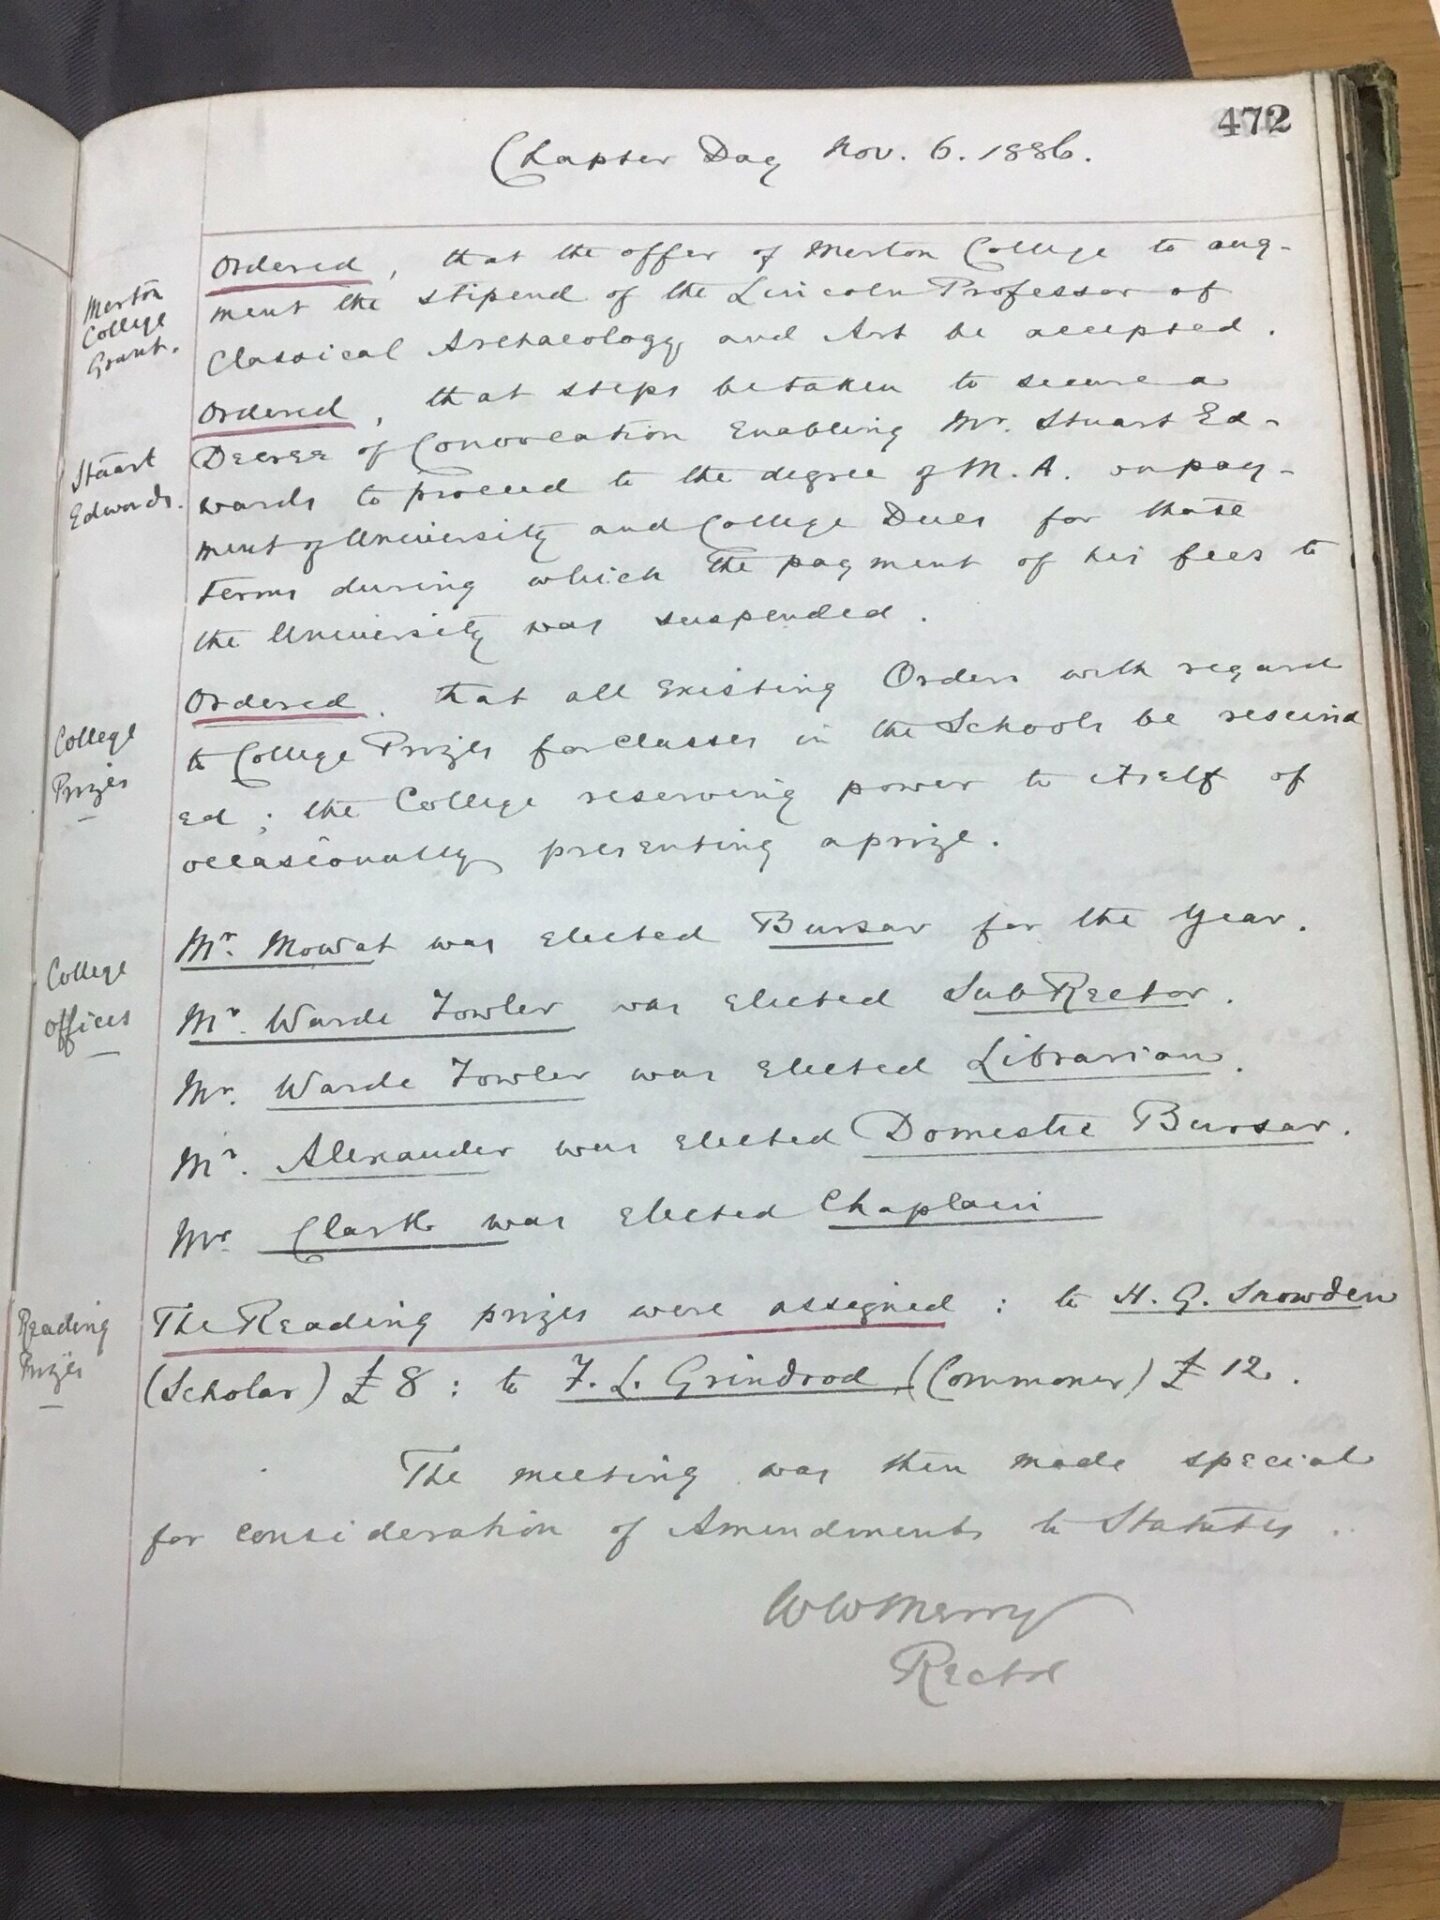 472
Chapter Day Nov. 6. 1886.
Merton
College
Grant.
Ordered, that the offer of Merton College to aug-
ment the stipend of the Lincoln Professor of
Classical Archaeology and Art be accepted.
Stuart
Edwards.
Ordered, that steps be taken to secure a
Decree of Convocation enabling Mr. Stuart Ed-
wards to proceed to the degree of M.A. on pay-
ment of University and College Dues for those
terms during which the payment of his fees to
the University was suspended.
College
Prizes
Ordered, that all existing Orders with regard
to College Prizes for classes in the Schools be rescind
ed; the College reserving power to itself of
occasionally presenting a prize.
College
offices
Mr. Mowat was elected Bursar for the year.
Mr. Warde Fowler was elected SubRector.
Mr. Warde Fowler was elected Librarian.
Mr. Alexander was elected Domestic Bursar.
Mr Clark was elected Chaplain
Reading
Prizes
The Reading prizes were assigned: to H. G. Snowden
(Scholar) £8: to F. L. Grindrod (Commoner) £12.
The meeting was then made special
for consideration of Amendments to Statutes.
WWMerry
Rector